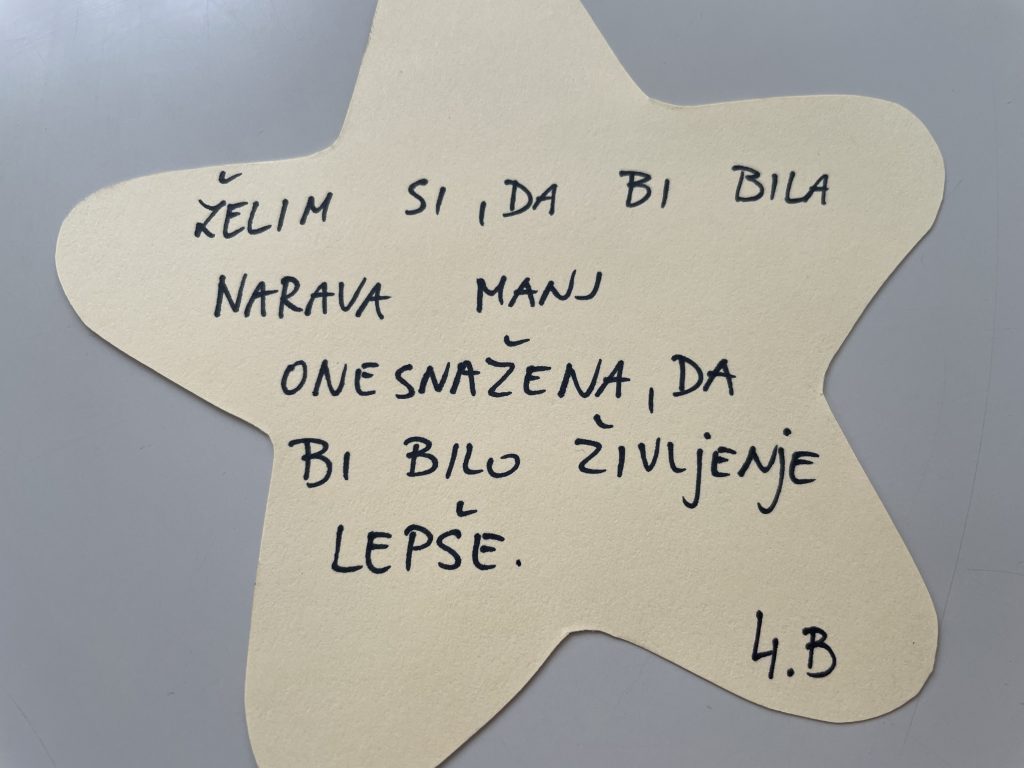 ŽELIM SI, DA BI BILA
NARAVA MANJ
ONESNAŽENA, DA
BI BILO ŽIVLjENjE
LEPŠE.
4.B